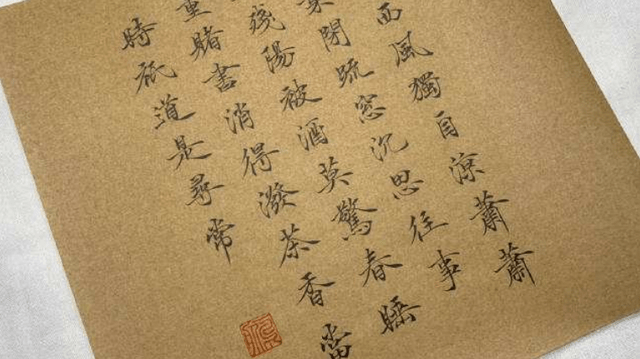 西風獨自涼蕭蕭
葉閉疏窗沉思往事
殘陽被酒莫驚春睡
重賭書消得潑茶香當
時祇道是尋常